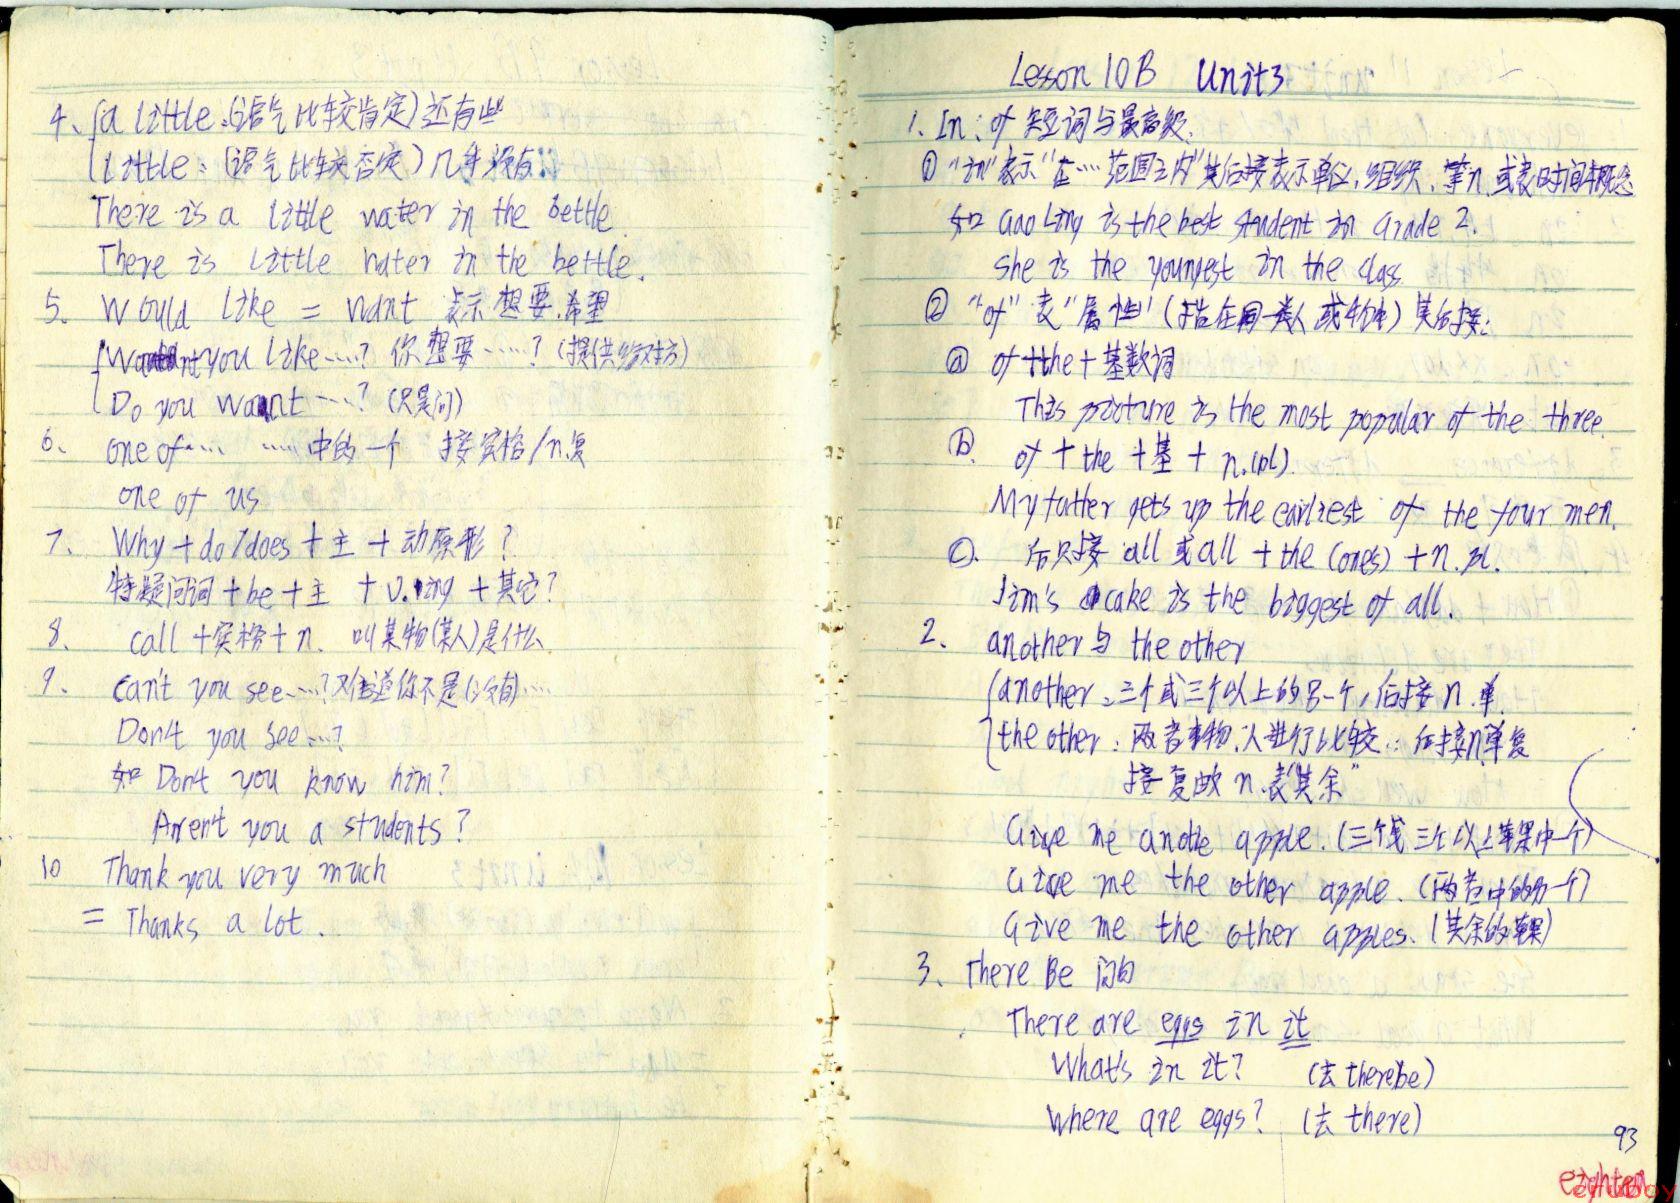 4、{a little：(语气比较肯定)还有些
little：(语气比较否定)几乎没有
There is a little water in the bettle.
There is little water in the bettle.
5. Would like = want 表示想要.希望
you like……? 你想要……? (提供给对方)
Do you want……? (只是问)
6、 one of…… ……中的一个 接宾格/n.复
one of us
7、 Why + do/does + 主 + 动原形?
特疑问词 + be + 主 + v.ing + 其它?
8、 call + 宾格 + n. 叫某物(某人)是什么
9、 Can't you see……? 难道你不是(没有)……
Don't you see……?
如 Don't you know him?
Aren't you a students?
10 Thank you very much
= Thanks a lot.
Lesson 10B Unit3
1、In；of 短词与最高级.
① "in"表示"在……范围之内"其后接表示单位,组织、等n.或表时间概念
如 Gao Ling is the best student in Grade 2.
She is the youngest in the class.
② "of" 表"属性" (指在同一类人或物中) 其后接:
ⓐ of + the + 基数词
This picture is the most popular of the three.
ⓑ of + the + 基 + n.(pl)
My father gets up the earliest of the four men.
ⓒ. 后只接 all 或 all + the (ones) + n.pl.
Jim's cake is the biggest of all.
2、 another 与 the other
{another：三个或三个以上的另一个,后接n.单.
the other：两者事物.人进行比较：后接n单复
接复数n.表"其余"
Give me anothe apple. (三个或三个以上苹果中一个)
Give me the other apple. (两者中的另一个)
Give me the other apples. (其余的苹果)
3、There Be 问句
There are eggs in it
What's in it? (去there be)
Where are eggs? (去 there)
93
eighteen